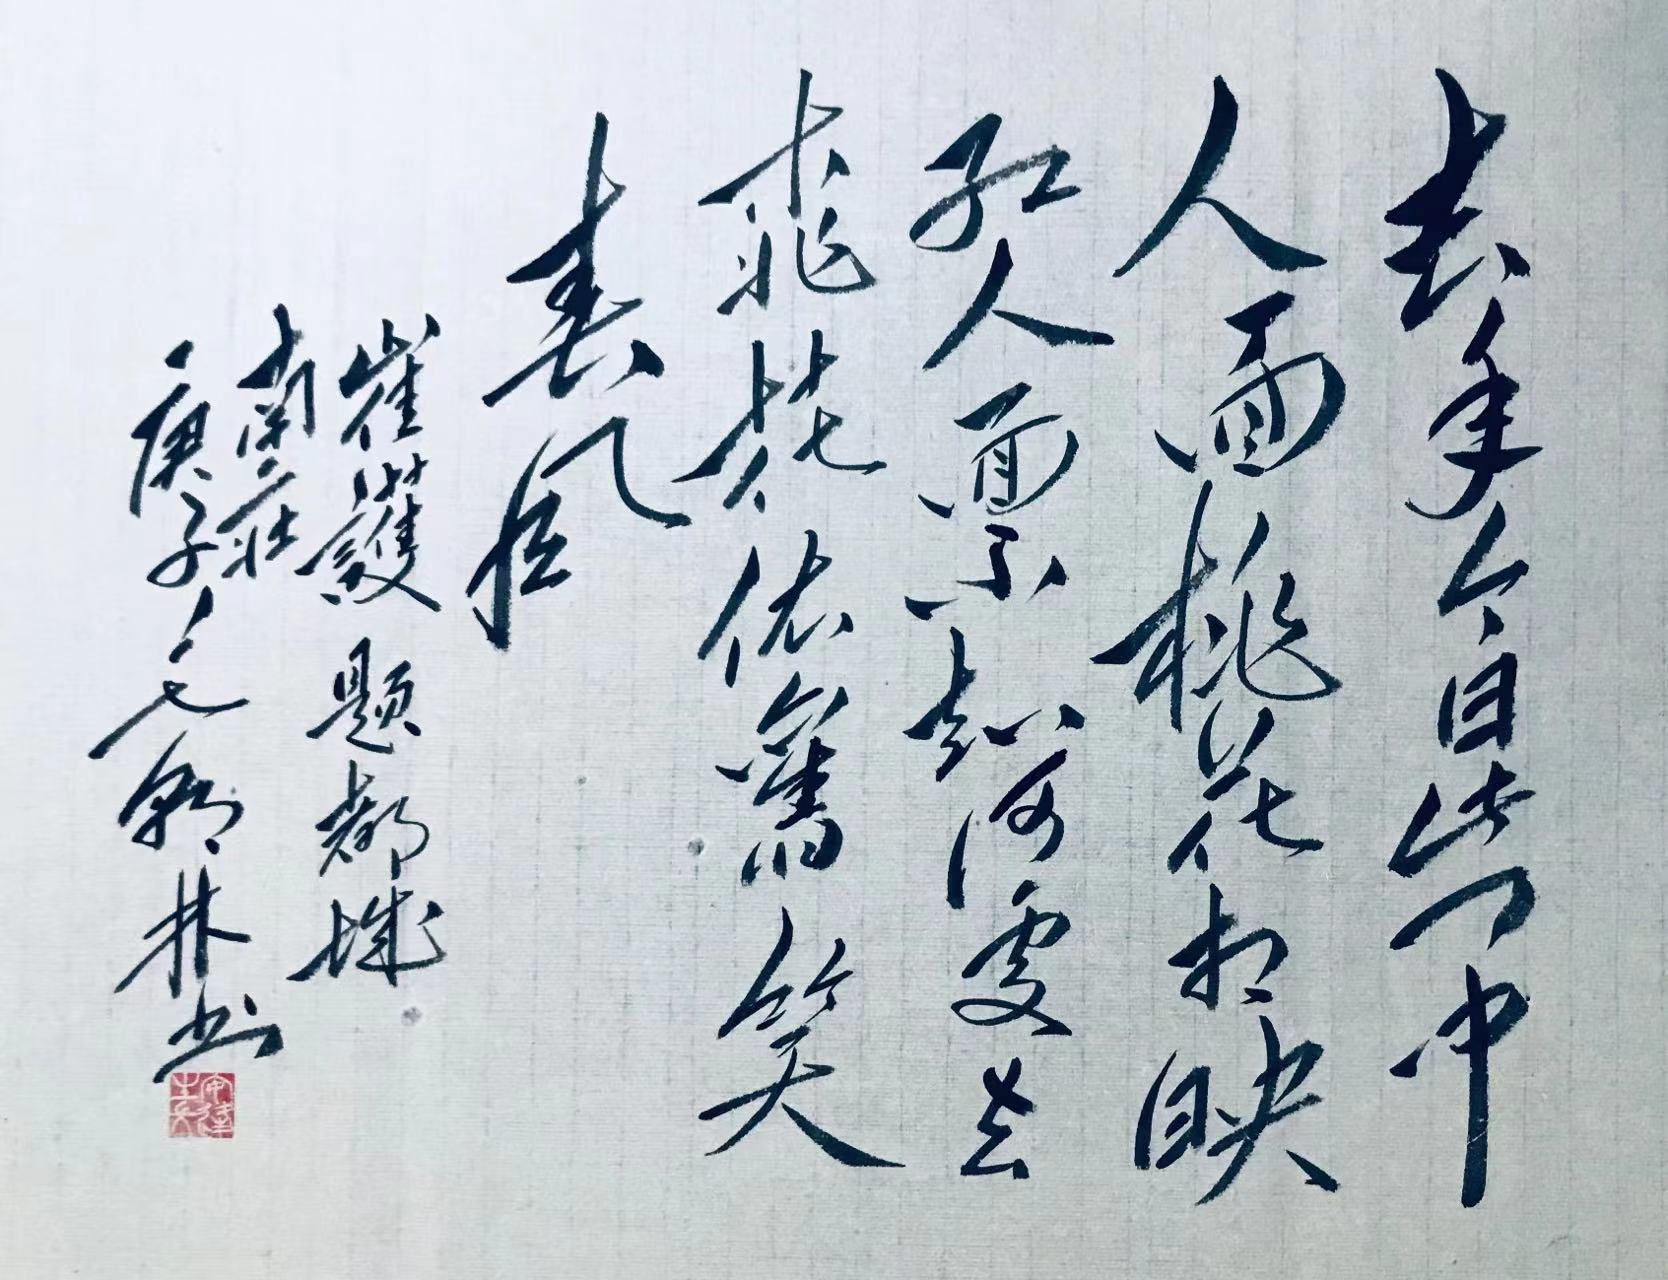 去年今日此门中
人面桃花相映
红人面不知何處去
桃花依舊笑
春风
崔護题都城
南莊
庚子 林书